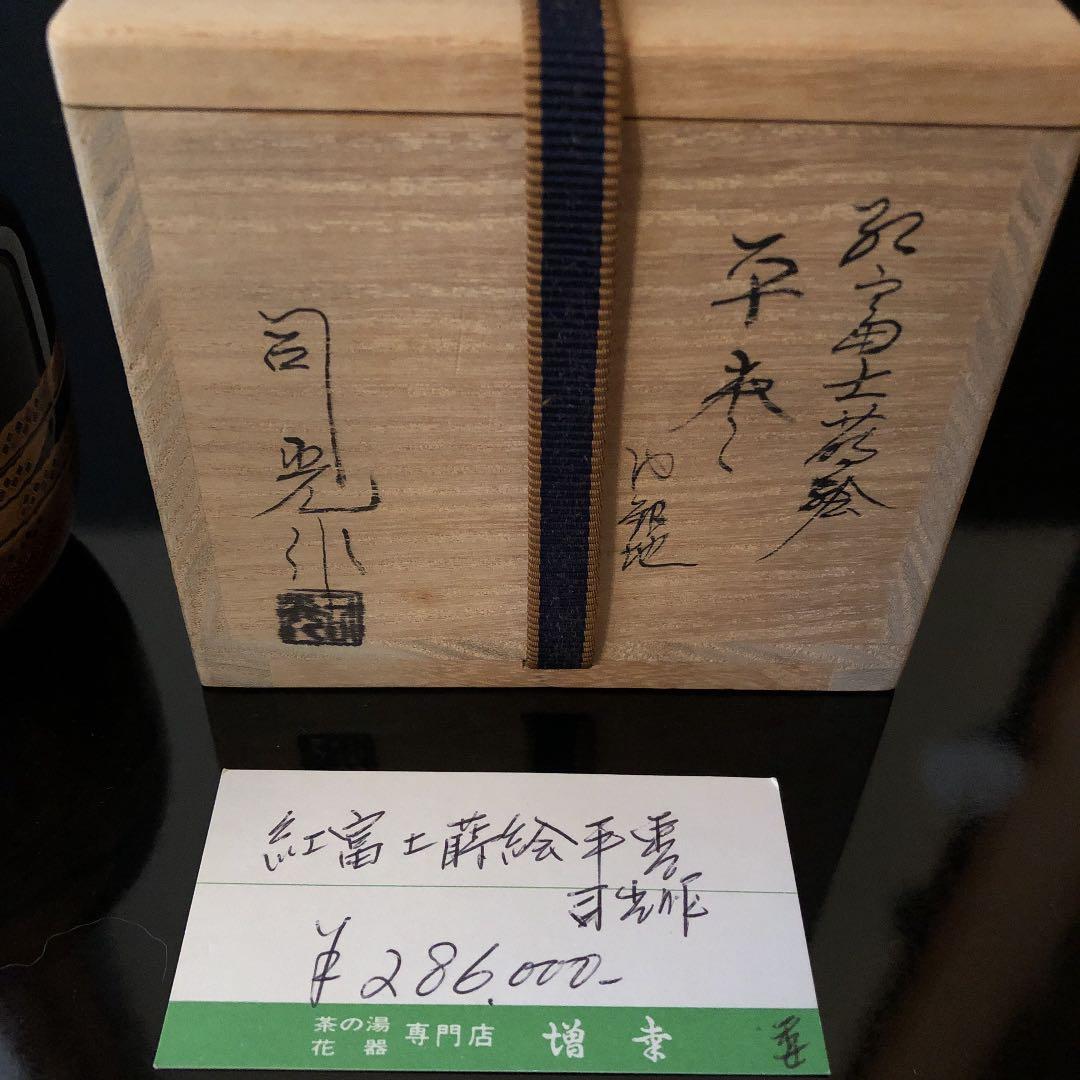 紅富士蒔絵
平棗
内銀地
司光作
紅富士蒔絵平棗
司光作
¥286,000-
茶の湯
花器
専門店
増幸